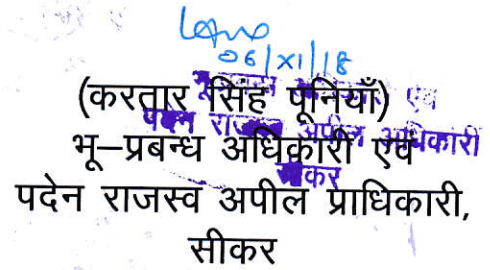 06/XI/18
(करतार सिंह पूनियाँ)
भू–प्रबन्ध अधिकारी एवं
पदेन राजस्व अपील प्राधिकारी,
सीकर
एवं
पदेन राजस्व अपील अधिकारी
सीकर